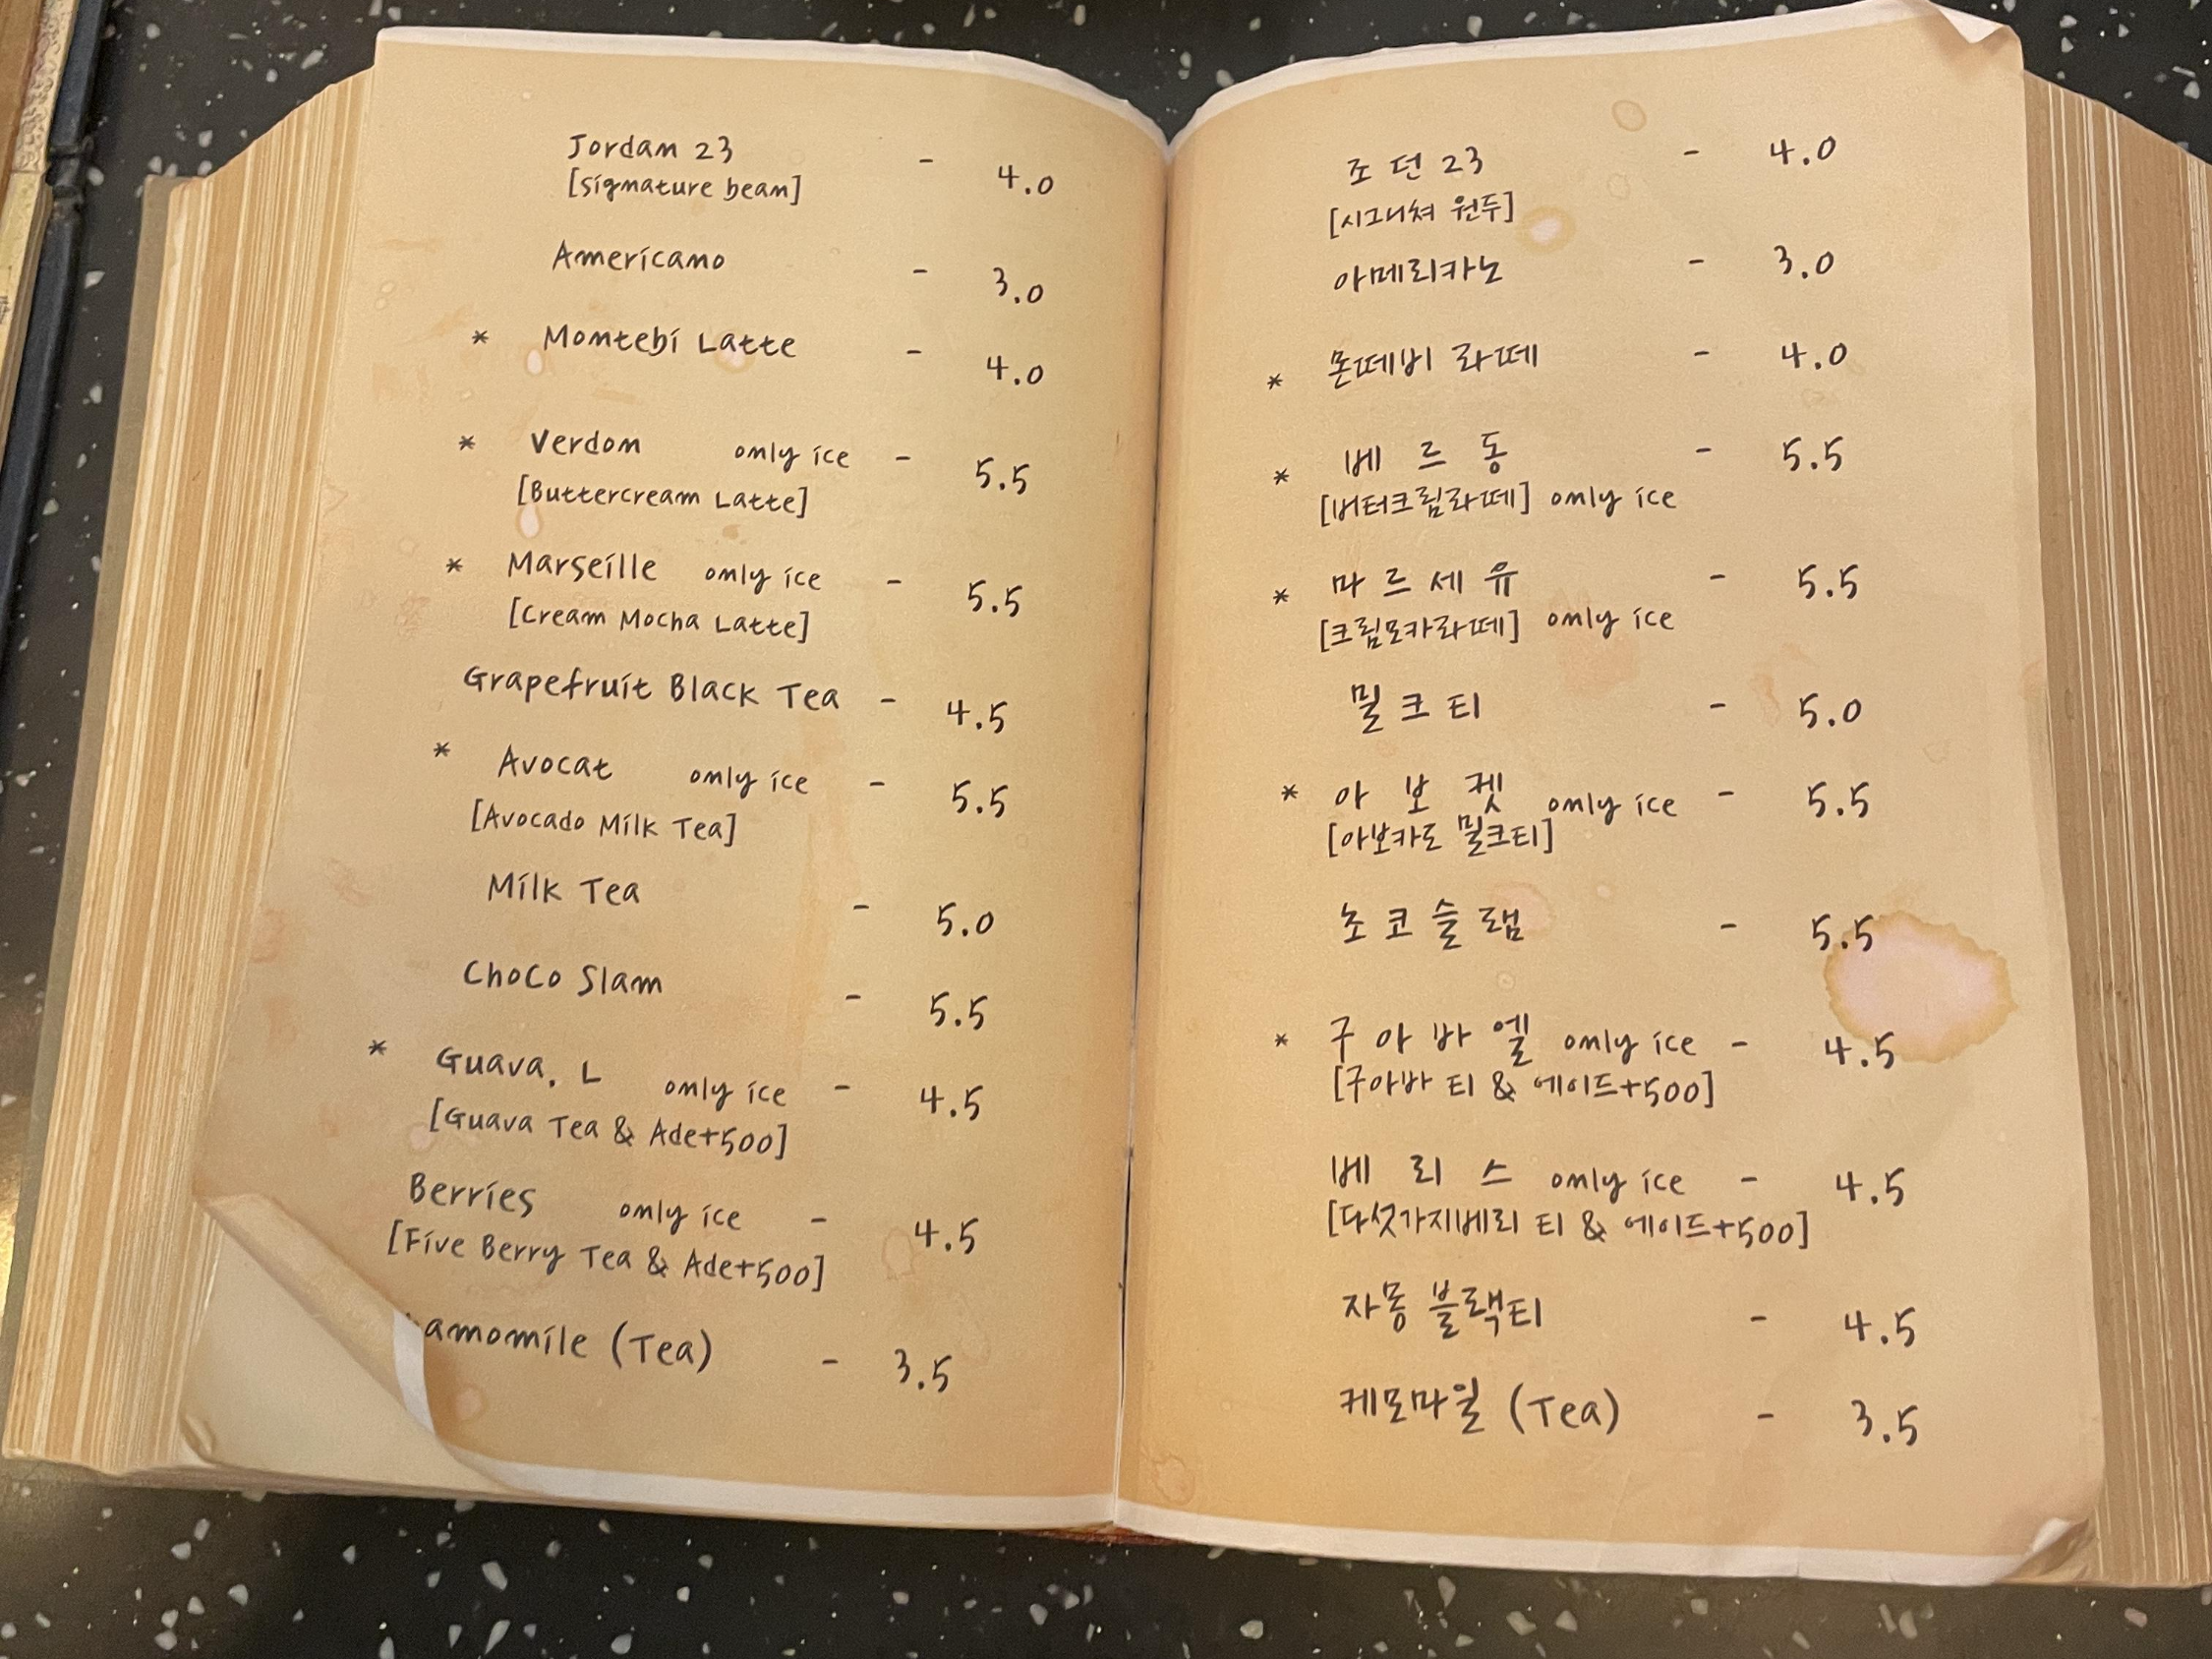 Jordan 23 - 4.0
[signature bean]
Americano - 3.0
* Montebi Latte - 4.0
* Verdon only ice - 5.5
[Buttercream Latte]
* Marseille only ice - 5.5
[Cream Mocha Latte]
Grapefruit Black Tea - 4.5
* Avocat only ice - 5.5
[Avocado Milk Tea]
Milk Tea - 5.0
Choco Slam - 5.5
* Guava. L only ice - 4.5
[Guava Tea & Ade+500]
Berries only ice - 4.5
[Five Berry Tea & Ade+500]
amomile (Tea) - 3.5
조 던 23 - 4.0
[시그니쳐 원두]
아메리카노 - 3.0
* 몬떼비 라떼 - 4.0
* 베 르 동 - 5.5
[버터크림라떼] only ice
* 마 르 세 유 - 5.5
[크림모카라떼] only ice
밀 크 티 - 5.0
* 아 보 켓 only ice - 5.5
[아보카도 밀크티]
초 코 슬 램 - 5.5
* 구 아 바 엘 only ice - 4.5
[구아바 티 & 에이드+500]
베 리 스 only ice - 4.5
[다섯가지베리 티 & 에이드+500]
자몽 블랙티 - 4.5
케모마일 (Tea) - 3.5